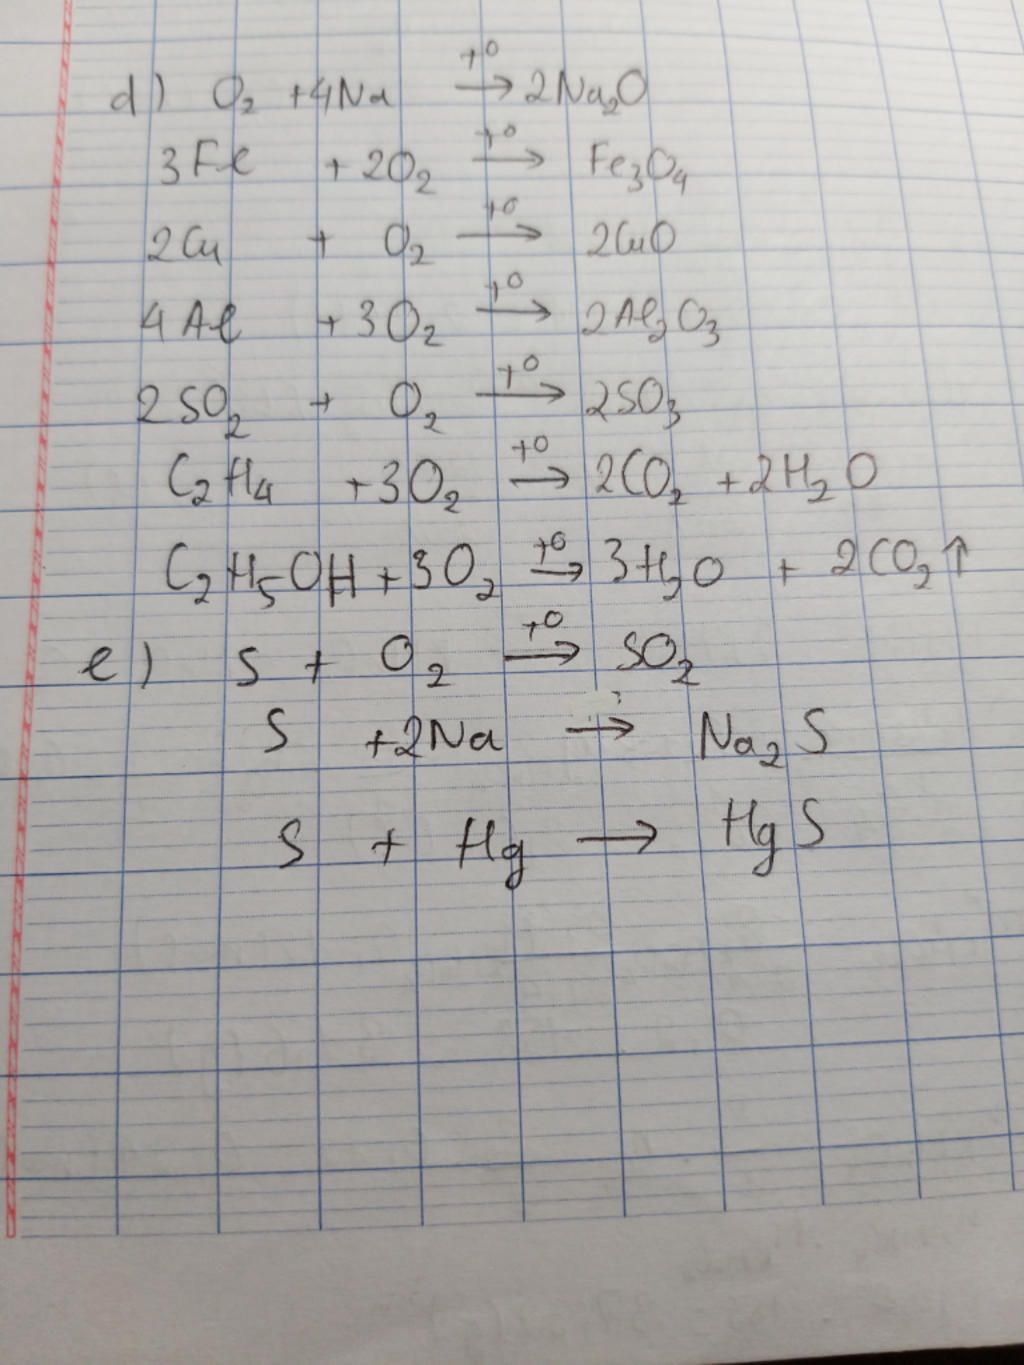 d) O₂ + 4Na \xrightarrow{t^0} 2Na₂O
3Fe + 2O₂ \xrightarrow{t^0} Fe₃O₄
2Cu + O₂ \xrightarrow{t^0} 2CuO
4Al + 3O₂ \xrightarrow{t^0} 2Al₂O₃
2SO₂ + O₂ \xrightarrow{t^0} 2SO₃
C₂H₄ + 3O₂ \xrightarrow{t^0} 2CO₂ + 2H₂O
C₂H₅OH + 3O₂ \xrightarrow{t^0} 3H₂O + 2CO₂↑
e) S + O₂ \xrightarrow{t^0} SO₂
S + 2Na → Na₂S
S + Hg → HgS